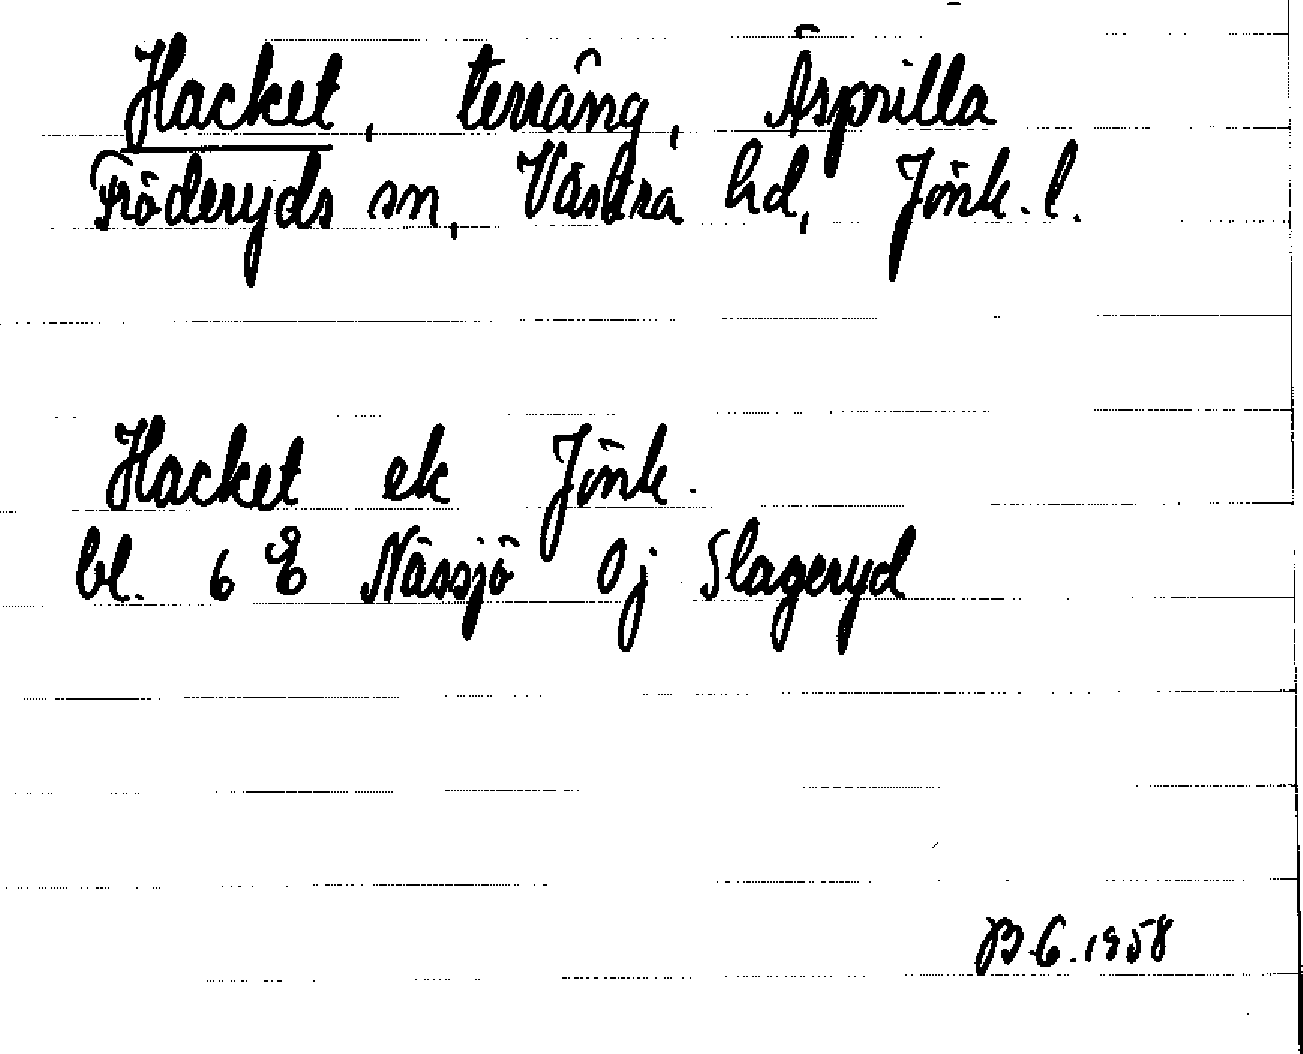 Hacket, terräng, Äsprilla
Fröderyds sn, Västra hd, Jönk. l.
Hacket ek Jönk.
bl. 6 E Nässjö 0j Slageryd
B.G. 1958